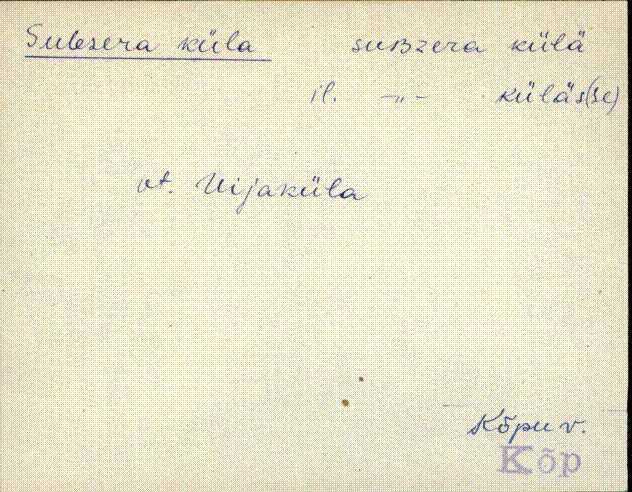 Subsera küla suBzera külä
il. -„- küläs(se)
vt. Uijaküla
Kõpu v.
Kõp